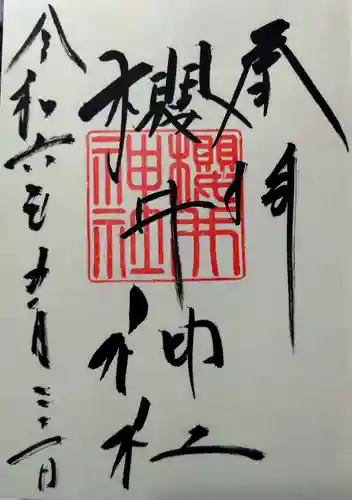 奉拝
櫻井神社
櫻井神社
令和六年十一月二十一日